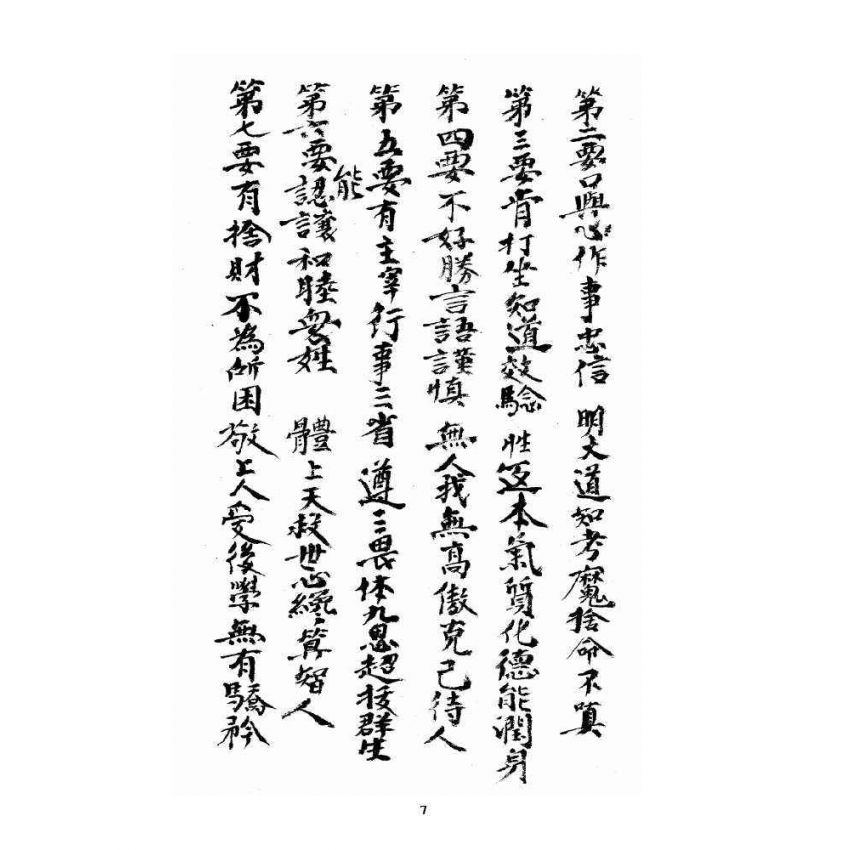 第二要口與心作事忠信 明大道知考魔捨命不嗔
第三要肯打坐知道效驗 性返本氣質化德能潤身
第四要不好勝言語謹慎 無人我無高傲克己待人
第五要有主宰行事三省 遵三畏体九思超拔群生
第六要能認讓和睦眾姓 體上天救世心纔算智人
第七要有捨財不為所困 敬上人愛後學無有驕矜
7